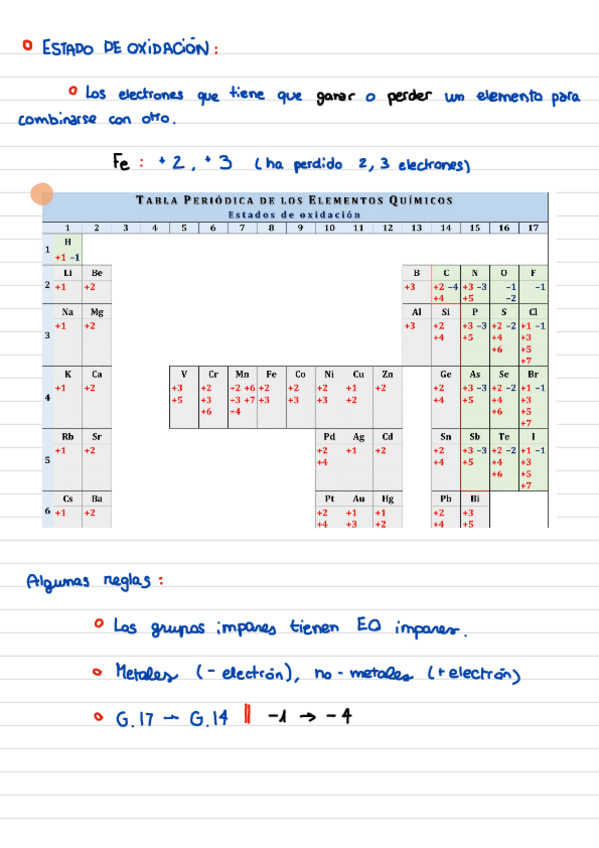 ESTADO DE OXIDACIÓN :
Los electrones que tiene que ganar o perder un elemento para
combinarse con otro.
Fe : +2 , +3 (ha perdido 2, 3 electrones)
TABLA PERIÓDICA DE LOS ELEMENTOS QUÍMICOS
Estados de oxidación
1 2 3 4 5 6 7 8 9 10 11 12 13 14 15 16 17
H
1
+1 -1
Li Be B C N O F
2 +1 +2 +3 +2 -4 +3 -3 -1 -1
+4 +5 -2
Na Mg Al Si P S Cl
+1 +2 +3 +2 +3 -3 +2 -2 +1 -1
3 +4 +5 +4 +3
+6 +5
+7
K Ca V Cr Mn Fe Co Ni Cu Zn Ge As Se Br
+1 +2 +3 +2 -2 +6 +2 +2 +2 +1 +2 +2 +3 -3 +2 -2 +1 -1
4 +5 +3 -3 +7 +3 +3 +3 +2 +4 +5 +4 +3
+6 -4 +6 +5
+7
Rb Sr Pd Ag Cd Sn Sb Te I
+1 +2 +2 +1 +2 +2 +3 -3 +2 -2 +1 -1
5 +4 +4 +5 +4 +3
+6 +5
+7
Cs Ba Pt Au Hg Pb Bi
6 +1 +2 +2 +1 +1 +2 +3
+4 +3 +2 +4 +5
Algunas reglas :
Los grupos impares tienen EO impares.
Metales (- electrón), no-metales (+ electrón)
G.17 - G.14 || -1 → -4